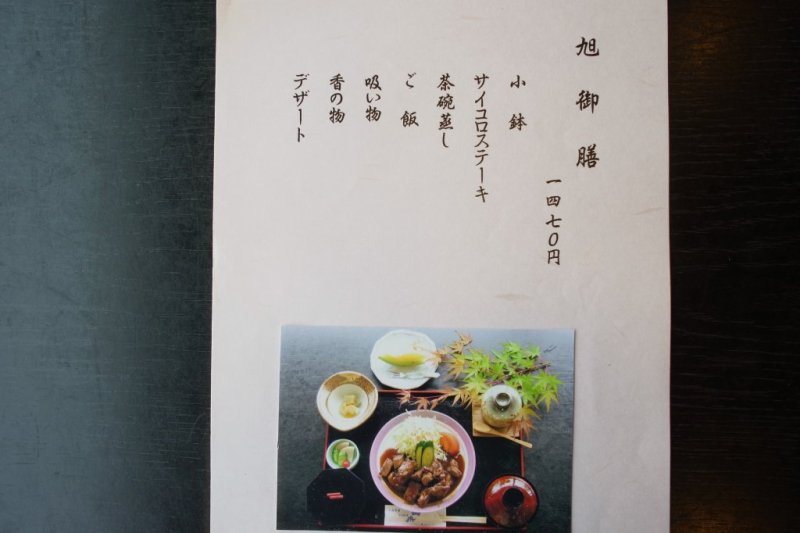 旭御膳
一四七〇円
小鉢
サイコロステーキ
茶碗蒸し
ご飯
吸い物
香の物
デザート